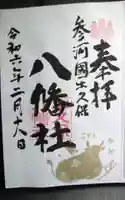 奉拝
参河國土久保
八幡社
令和六年二月十八日